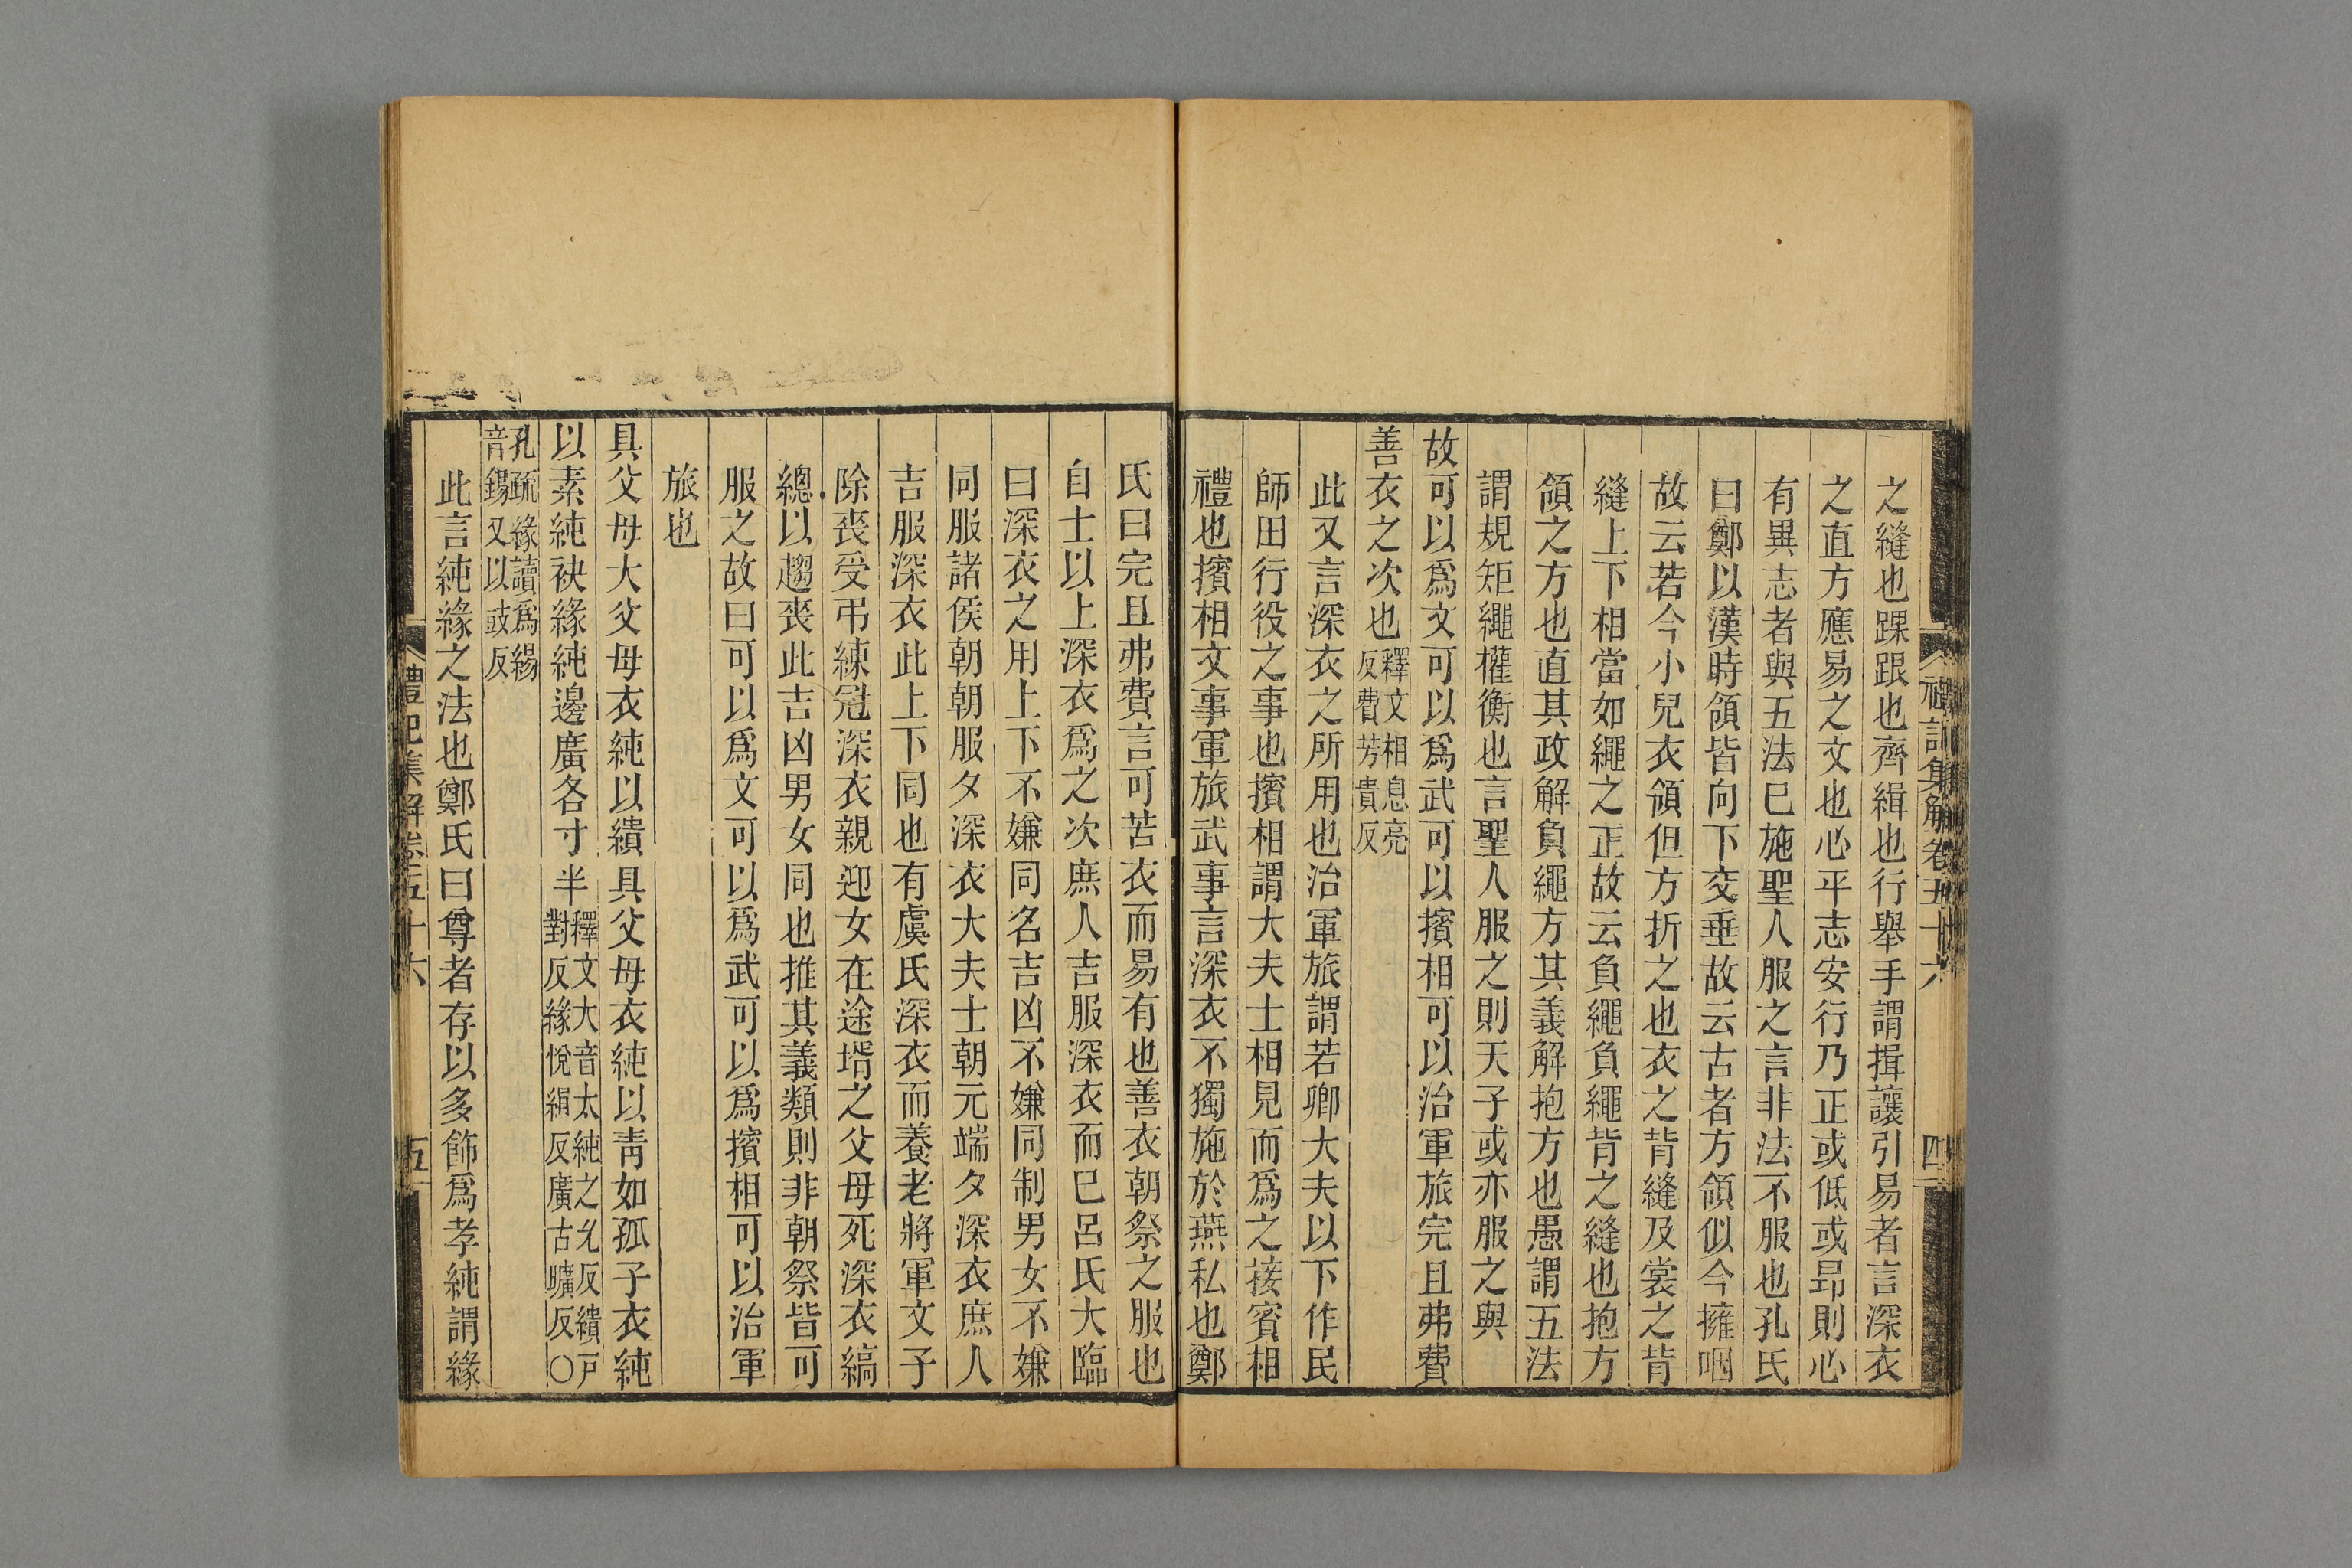 禮記集解卷五十六
四
之縫也踝跟也齊緝也行舉手謂揖讓引易者言深衣
之直方應易之文也心平志安行乃正或低或昻則心
有異志者與五法巳施聖人服之言非法不服也孔氏
曰鄭以漢時領皆向下交垂故云古者方領似今擁咽
故云若今小兒衣領但方折之也衣之背縫及裳之背
縫上下相當如繩之正故云負繩負繩背之縫也抱方
領之方也直其政解負繩方其義解抱方也愚謂五法
謂規矩繩權衡也言聖人服之則天子或亦服之與
故可以爲文可以爲武可以擯相可以治軍旅完且弗費
善衣之次也釋文相息亮
反費芳貴反
此又言深衣之所用也治軍旅謂若卿大夫以下作民
師田行役之事也擯相謂大夫士相見而爲之接賓相
禮也擯相文事軍旅武事言深衣不獨施於燕私也鄭
氏曰完且弗費言可苦衣而易有也善衣朝祭之服也
自士以上深衣爲之次庶人吉服深衣而巳呂氏大臨
曰深衣之用上下不嫌同名吉凶不嫌同制男女不嫌
同服諸侯朝朝服夕深衣大夫士朝元端夕深衣庶人
吉服深衣此上下同也有虞氏深衣而養老將軍文子
除喪受弔練冠深衣親迎女在途壻之父母死深衣縞
總以趨喪此吉凶男女同也推其義類則非朝祭皆可
服之故曰可以爲文可以爲武可以爲擯相可以治軍
旅也
具父母大父母衣純以繢具父母衣純以靑如孤子衣純
以素純袂緣純邊廣各寸半釋文大音太純之允反繢戸
對反緣悅絹反廣古曠反○
孔疏緣讀爲緆
音鍚又以豉反
此言純緣之法也鄭氏曰尊者存以多飾爲孝純謂緣
禮記集解卷五十六
五